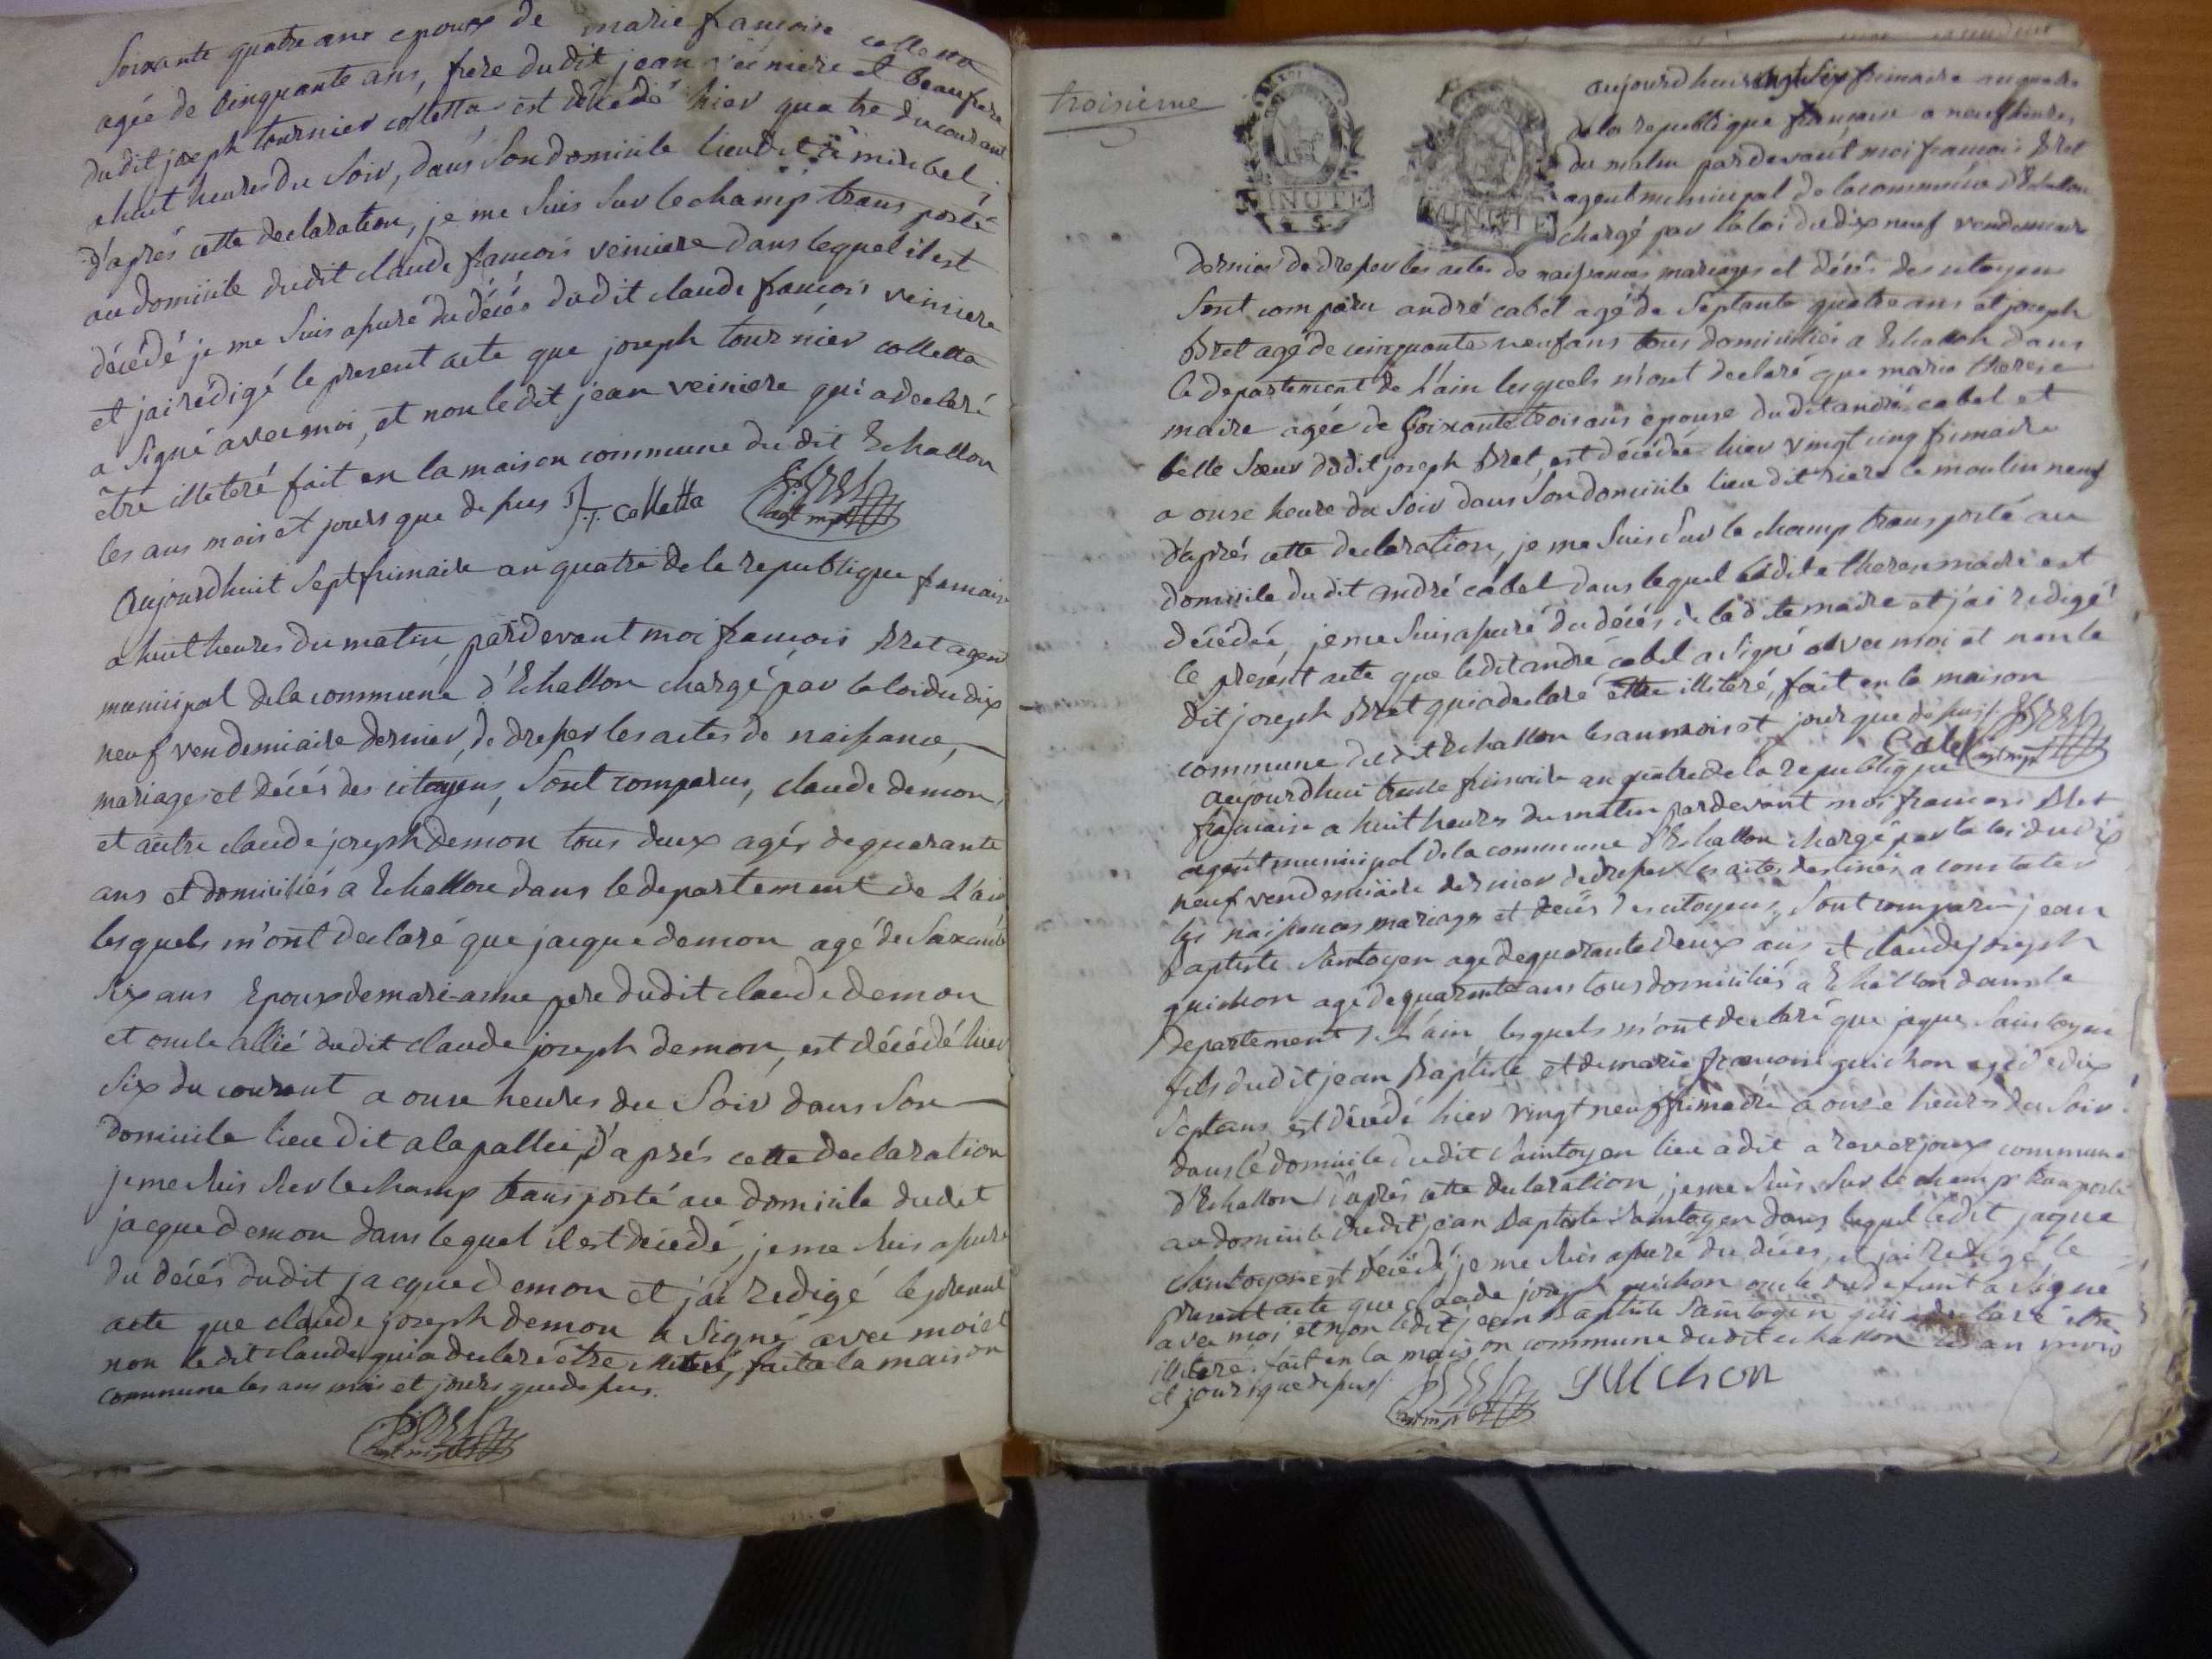 Soixante quatre ans epoux de marie francoise colletta
agée de Cinquante ans, frere dudit jean veiniere et beaufrere
dudit joseph tournier colletta est décédé hier quatre du courant
a huit heures du Soir, dans Son domicile lieu dit a mirebel,
d'aprés cette declaration, je me Suis Sur le champ transporté
au domicile dudit claude francois veiniere dans lequel il est
décédé je me Suis apuré du décés dudit claude francois veiniere
et jai rédigé le present acte que joseph tournier colletta
a Signé avec moi, et non ledit jean veiniere qui a declaré
étre illeteré fait en la maison commune du dit Echallon
les ans mois et jours que de pus J.T. Colletta
BRET
agt mpl
Aujourdhuit Sept frimaire an quatre de la republique francaise
a huit heures du matin, pardevant moi francois Bret agent
municipal de la commune d'Echallon chargé par la loi du dix
neuf vendemiaire dernier, de dreper les actes de naissance,
mariages et décés des citoyens, Sont comparus, claude demon,
et autre claude joseph demon tous deux agés de quarante
ans et domiciliés a Echallon dans le departement de L'ain
lesquels m'ont declaré que jacque demon agé de Saxante
Six ans Epoux de marie-anne pere dudit claude demon
et oncle allié dudit claude joseph demon, est décédé hier
Six du courant a onze heures du Soir dans Son
domicile lieu dit a la pallie, d'aprés cette declaration
je me Suis Sur le champ transporté au domicile dudit
jacque demon dans lequel il est décédé, je me Suis apuré
du décés dudit jacque demon et j'ai redigé le present
acte que claude joseph demon a Signé avec moi et
non le dit claude qui a declaré étre illeteré, fait a la maison
commune les ans mois et jours que de pus.
BRET
agt mpl
troisieme
MINUTE
MINUTE
aujourdhui vingt Six frimaire an quatre
de la republique francaise a neuf heures
du matin pardevant moi francois Bret
agent municipal de la commune d'Echallon
chargé par la loi du dix neuf vendemiaire
dernier de dreper les actes de naissances mariages et décés des citoyens
Sont comparu andré cabel agé de Septante quatre ans et joseph
Bret agé de cinquante neuf ans tous domiciliés a Echallon dans
le departement de L'ain lesquels m'ont declaré que marie therese
maire agée de Soixante trois ans epouse dudit andré cabel et
belle Sœur dudit joseph Bret, est décédée hier vingt cinq frimaire
a onse heure du Soir dans Son domicile lieu dit riere le moulin neuf
d'aprés cette declaration, je me Suis Sur le champ transporté au
domicile du dit andré cabel dans lequel ladite therese maire est
décédée, je me Suis apuré du décés de la dite maire et j'ai redigé
le présent acte que ledit andré cabel a Signé avec moi et non le
dit joseph Bret qui a declaré étre illiteré, fait en la maison
commune dudit Echallon les an mois et jour que de pus.
Cabel BRET
agt mpl
aujourdhui trente frimaire an quatre de la republique
francaise a huit heures du matin pardevant moi francois Bret
agent municipal de la commune d'Echallon chargé par la loi du dix
neuf vendemiaire dernier de dreper les actes destinés a constater
les naissances mariage et decés des citoyens, Sont comparu jean
Baptiste Saintoyen agé de quarante deux ans et claude joseph
guichon agé de quarante ans tous domiciliés a Echallon dans le
departement de L'ain, lesquels m'ont declaré que jaque Saintoyen
fils dudit jean Baptiste et de marie francoise guichon agé de dix
Sept ans est décédé hier vingt neuf frimaire a onze heures du Soir
dans le domicile dudit Saintoyen lieu dit a reverjoux commune
d'Echallon d'aprés cette declaration, je me Suis Sur le champ transporté
au domicile dudit jean Baptiste Saintoyen dans lequel ledit jaque
Saintoyen est décédé, je me Suis apuré du déces, et jai redigé le
present acte que claude joseph guichon oncle du defunt a Signé
avec moi et non ledit jean Baptiste Saintoyen qui a declaré étre
illiteré. fait en la maison commune dudit echallon les an mois
et jour que de pus.
BRET
agt mpl
GUICHON